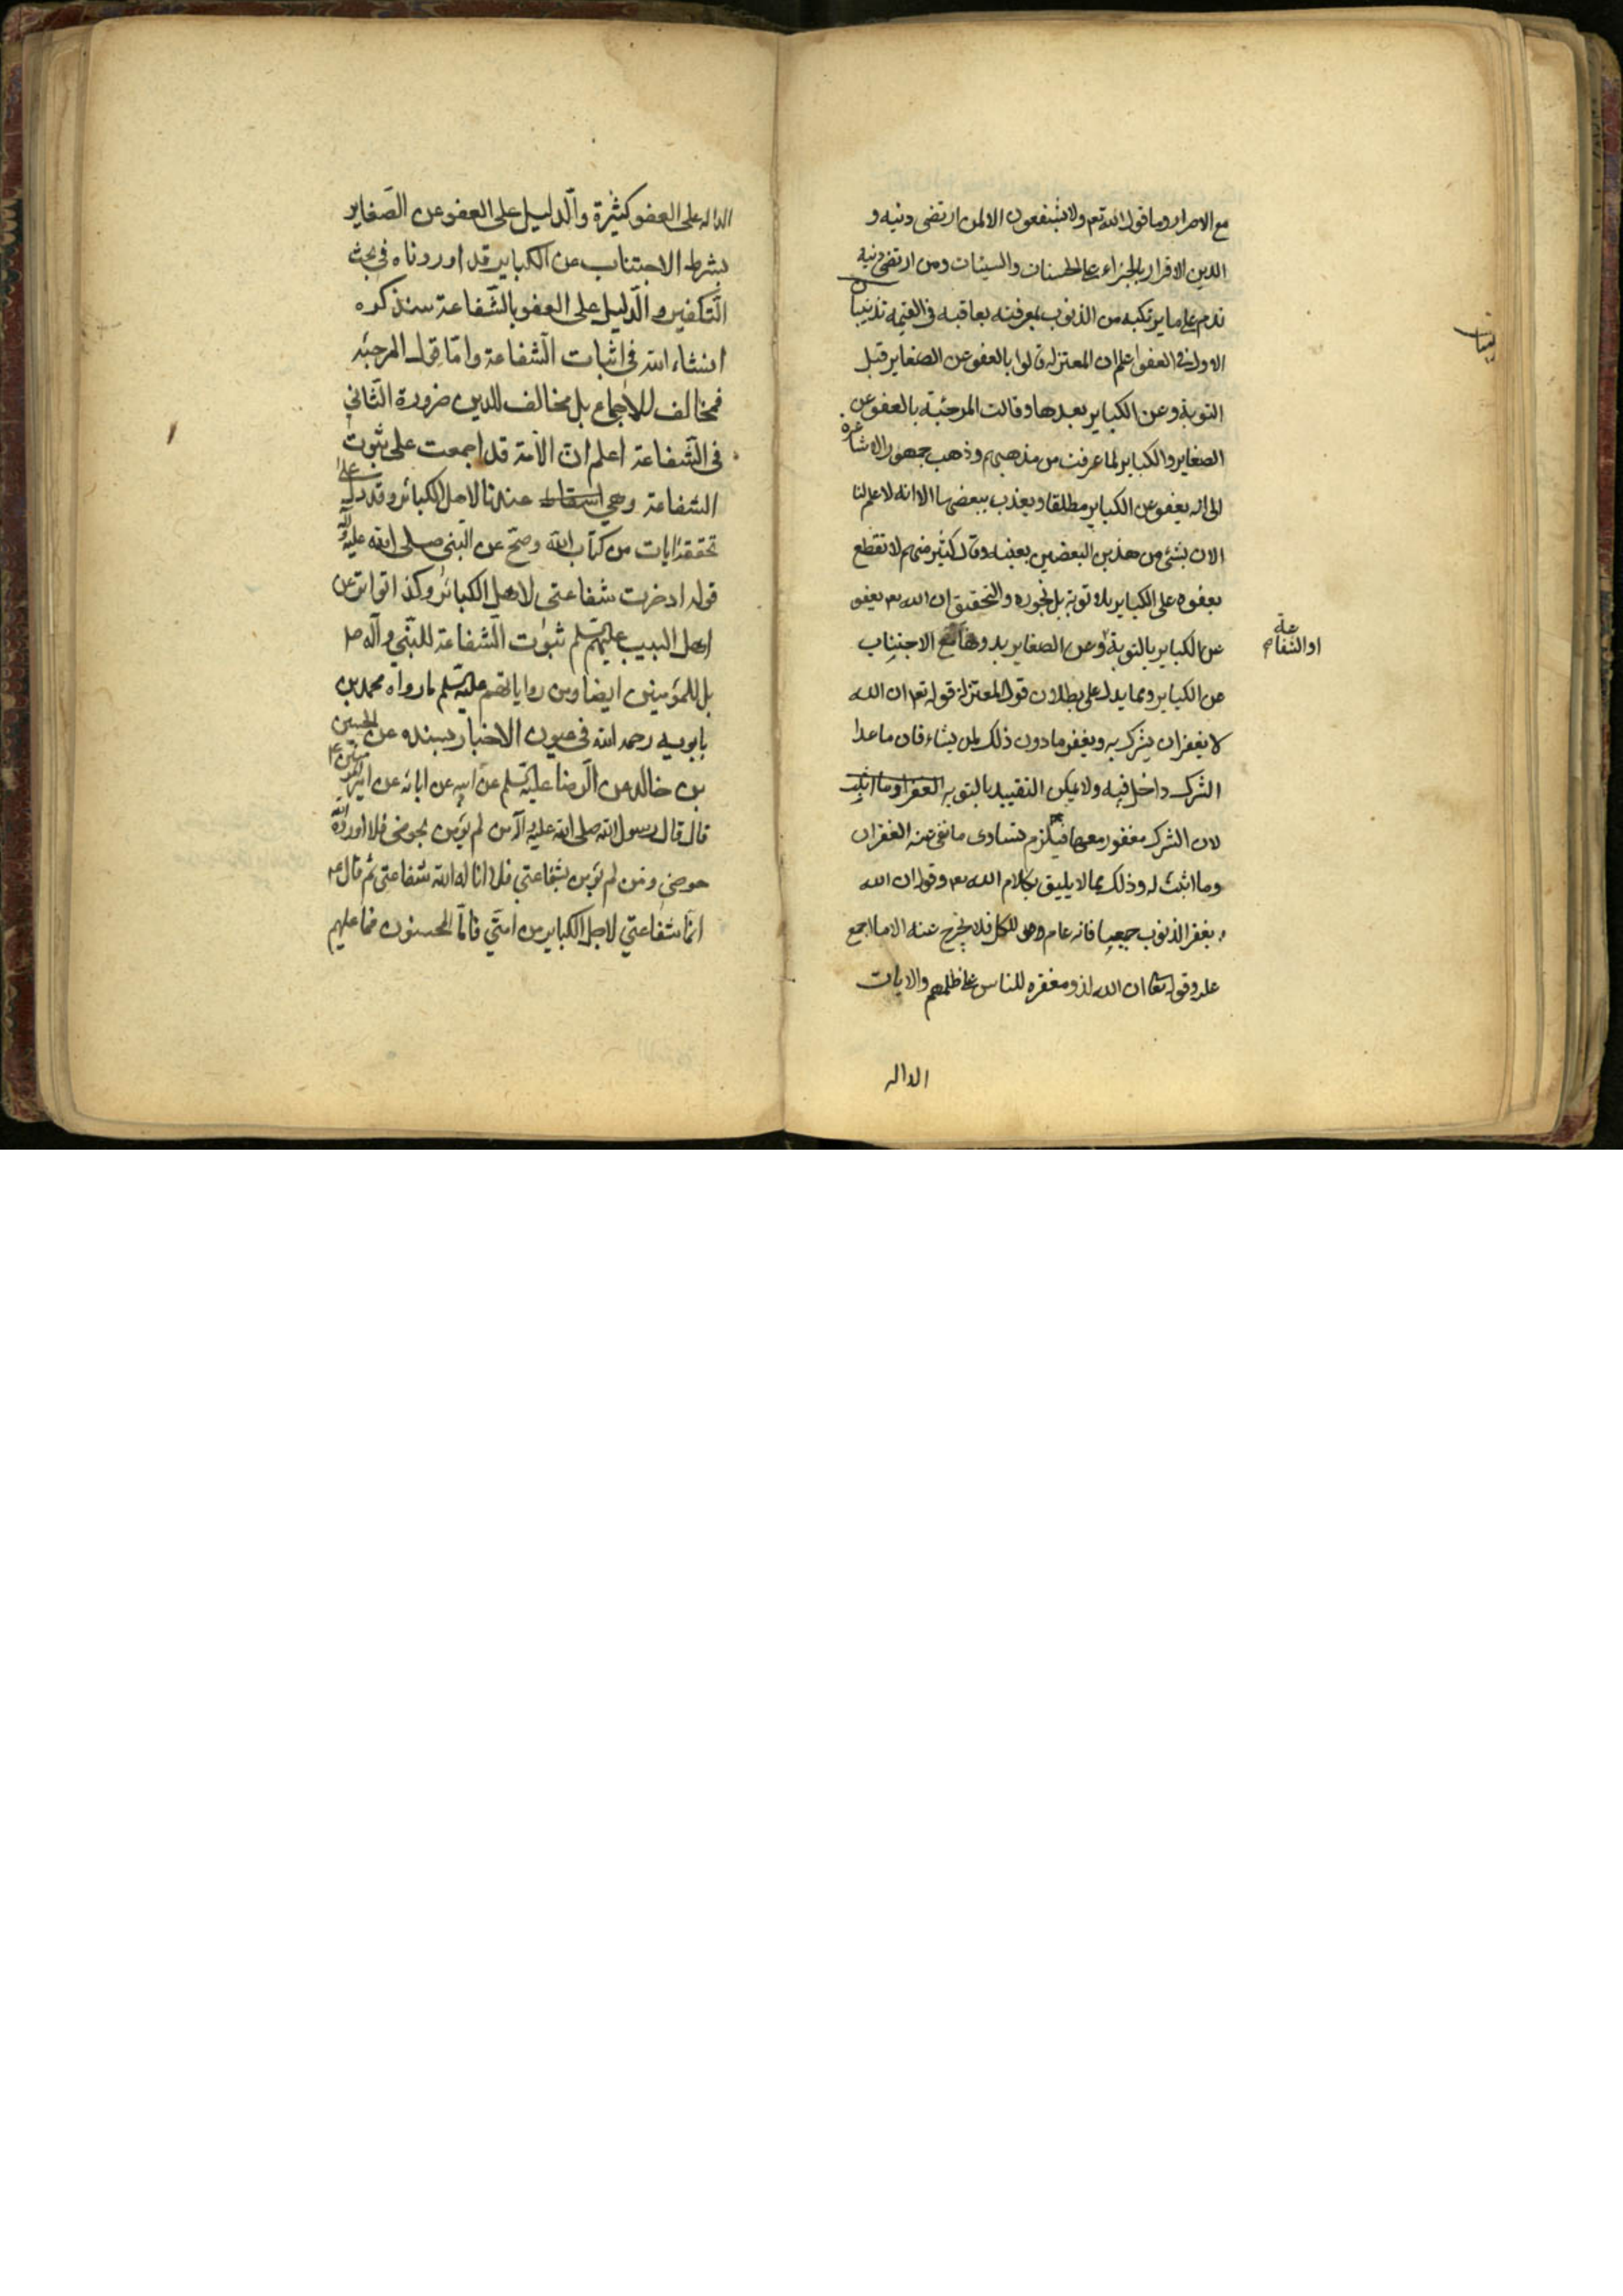 مع الاصرار وما قول الله تعم ولا يشفعون الا لمن ارتضى دينه و
الدين الاقرار بالجزاء على الحسنات والسيئات ومن ارتضى دينه
ندم على ما يرتكبه من الذنوب بمعرفته بعاقبه فى القيمه تذنيبان
الاول فى العفو اعلم ان المعتزله قالوا بالعفو عن الصغاير قبل
التوبة وعن الكباير بعدها وقالت المرجئة بالعفو عن
الصغاير والكباير لما عرفت من مذهبهم وذهب جمهور الاشاعره
الى انه يعفو عن الكباير مطلقا ويعذب ببعضها الا انه لا علم لنا
الان بشئ من هذين البعضين بعينه وقال كثير منهم لا نقطع
بعفوه على الكباير بلا توبة بل نجوزه والتحقيق ان الله تعم يعفو
عن الكباير بالتوبة وعن الصغاير بدونها مع الاجتناب
او الشفاعة
عن الكباير ومما يدل على بطلان قول المعتزلة قوله تعم ان الله
لا يغفر ان يشرك به ويغفر مادون ذلك لمن يشاء فان ما عدا
الشرك داخل فيه ولا يمكن التقييد بالتوبه الغفر او ما اثبت
لان الشرك مغفور معها فيلزم تساوى ما نفى عنه الغفران
وما اثبت له وذلك مما لا يليق بكلام الله تعم وقوله ان الله
يغفر الذنوب جميعا فانه عام للكل فلا يخرج عنه الا ما اجمع
عليه وقوله تعا ان الله لذو مغفره للناس على ظلمهم والايات
الداله
الداله على العفو كثيرة والدليل على العفو عن الصّغاير
بشرط الاجتناب عن الكباير قد اوردناه فى بحث
التّكفير والدّليل على العفو بالشّفاعة سنذكره
انشاء الله فى اثبات الشّفاعة وامّا قول المرجئه
فمخالف للاجماع بل مخالف للدين ضرورة الثّانى
فى الشّفاعة اعلم انّ الامّة قد اجمعت على ثبوت
الشفاعة وهى اسقاط عندنا لاهل الكبائر وقد دلّ على
تحققه ايات من كتاب الله وصحّ عن النّبى صلى الله عليه وآله
قوله ادخرت شفاعتى لاهل الكبائر وكذا تواتر عن
اهل البيت عليهم السّلم ثبوت الشّفاعة للنّبى وآله ص
بل للمؤمنين ايضا ومن رواياتهم عليهم السّلم ما رواه محمد بن
بابويه رحمه الله فى عيون الاخبار بسنده عن الحسين
بن خالد عن الرّضا عليه السّلم عن ابيه عن ابائه عن امير المؤمنين ع
قال قال رسول الله صلى الله عليه وآله من لم يؤمن بحوضى فلا اورده الله
حوضى ومن لم يؤمن بشفاعتى فلا اناله الله شفاعتى ثم قال ع
انّما شفاعتى لاهل الكباير من امتّى فامّا المحسنون فما عليهم